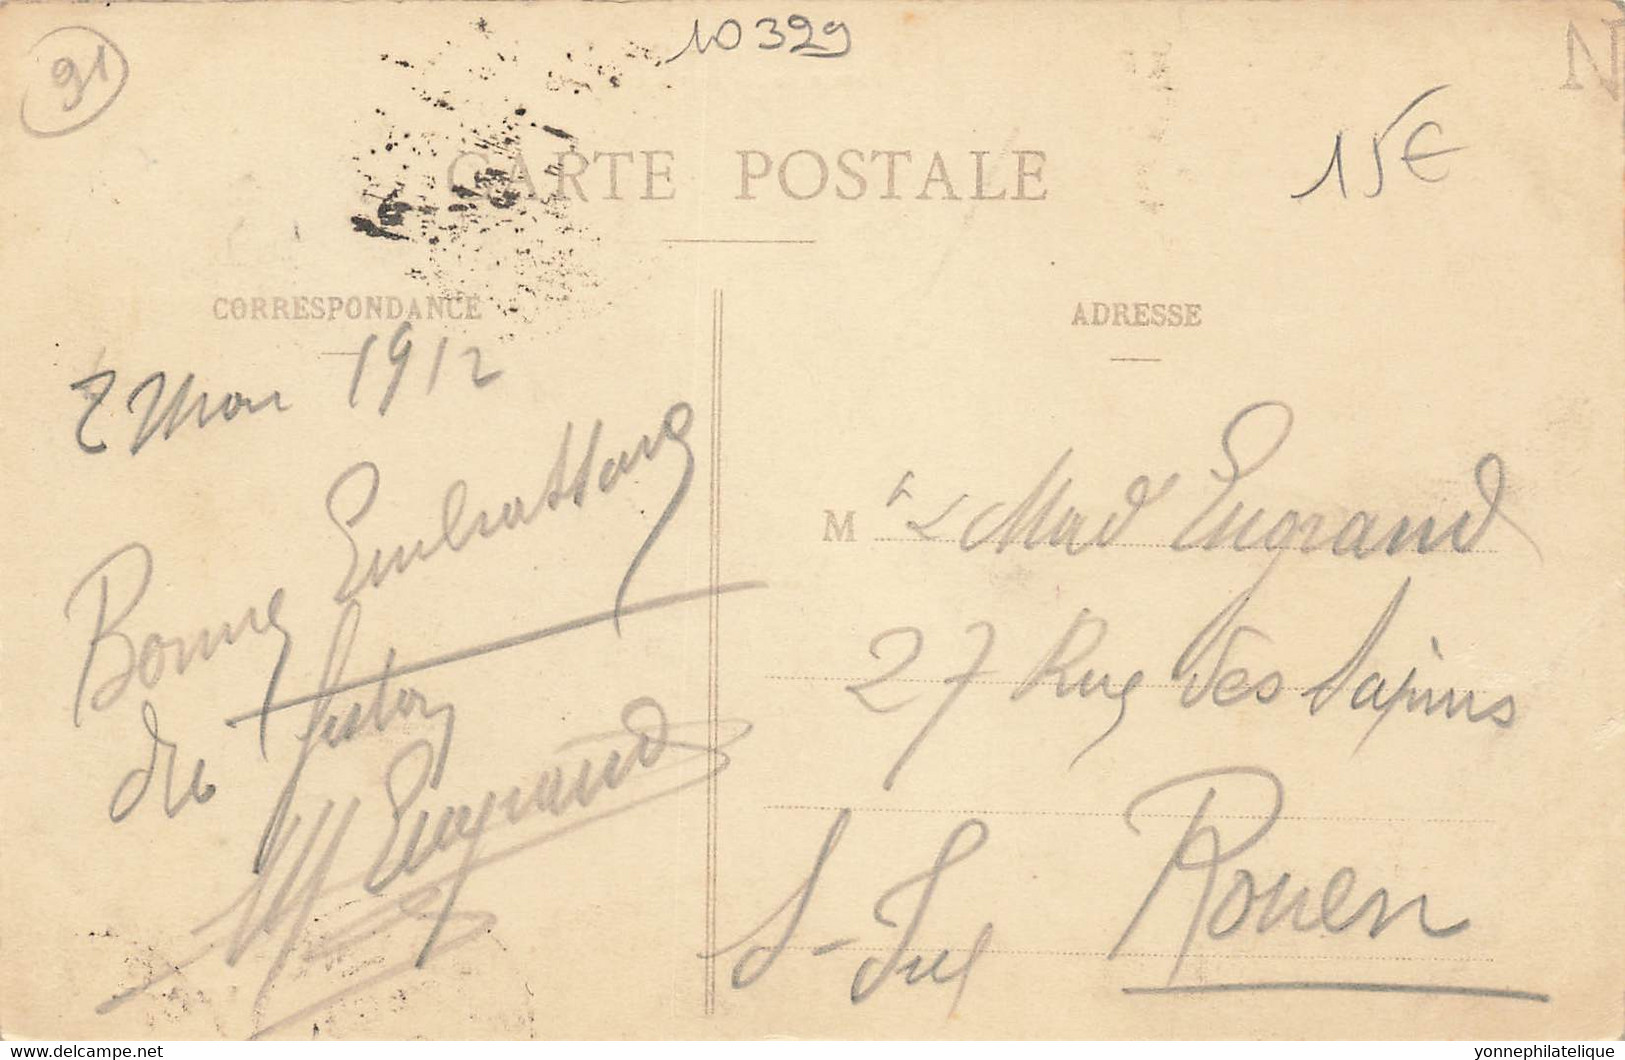 91
10399
N
15€
CARTE POSTALE
CORRESPONDANCE
ADRESSE
2 Mai 1912
Bonne Embrassons
du fiston
M Engrand
M r & Mad Engrand
27 Rue des Sapins
Rouen
S- Inf
www.delcampe.net
yonnephilatelique